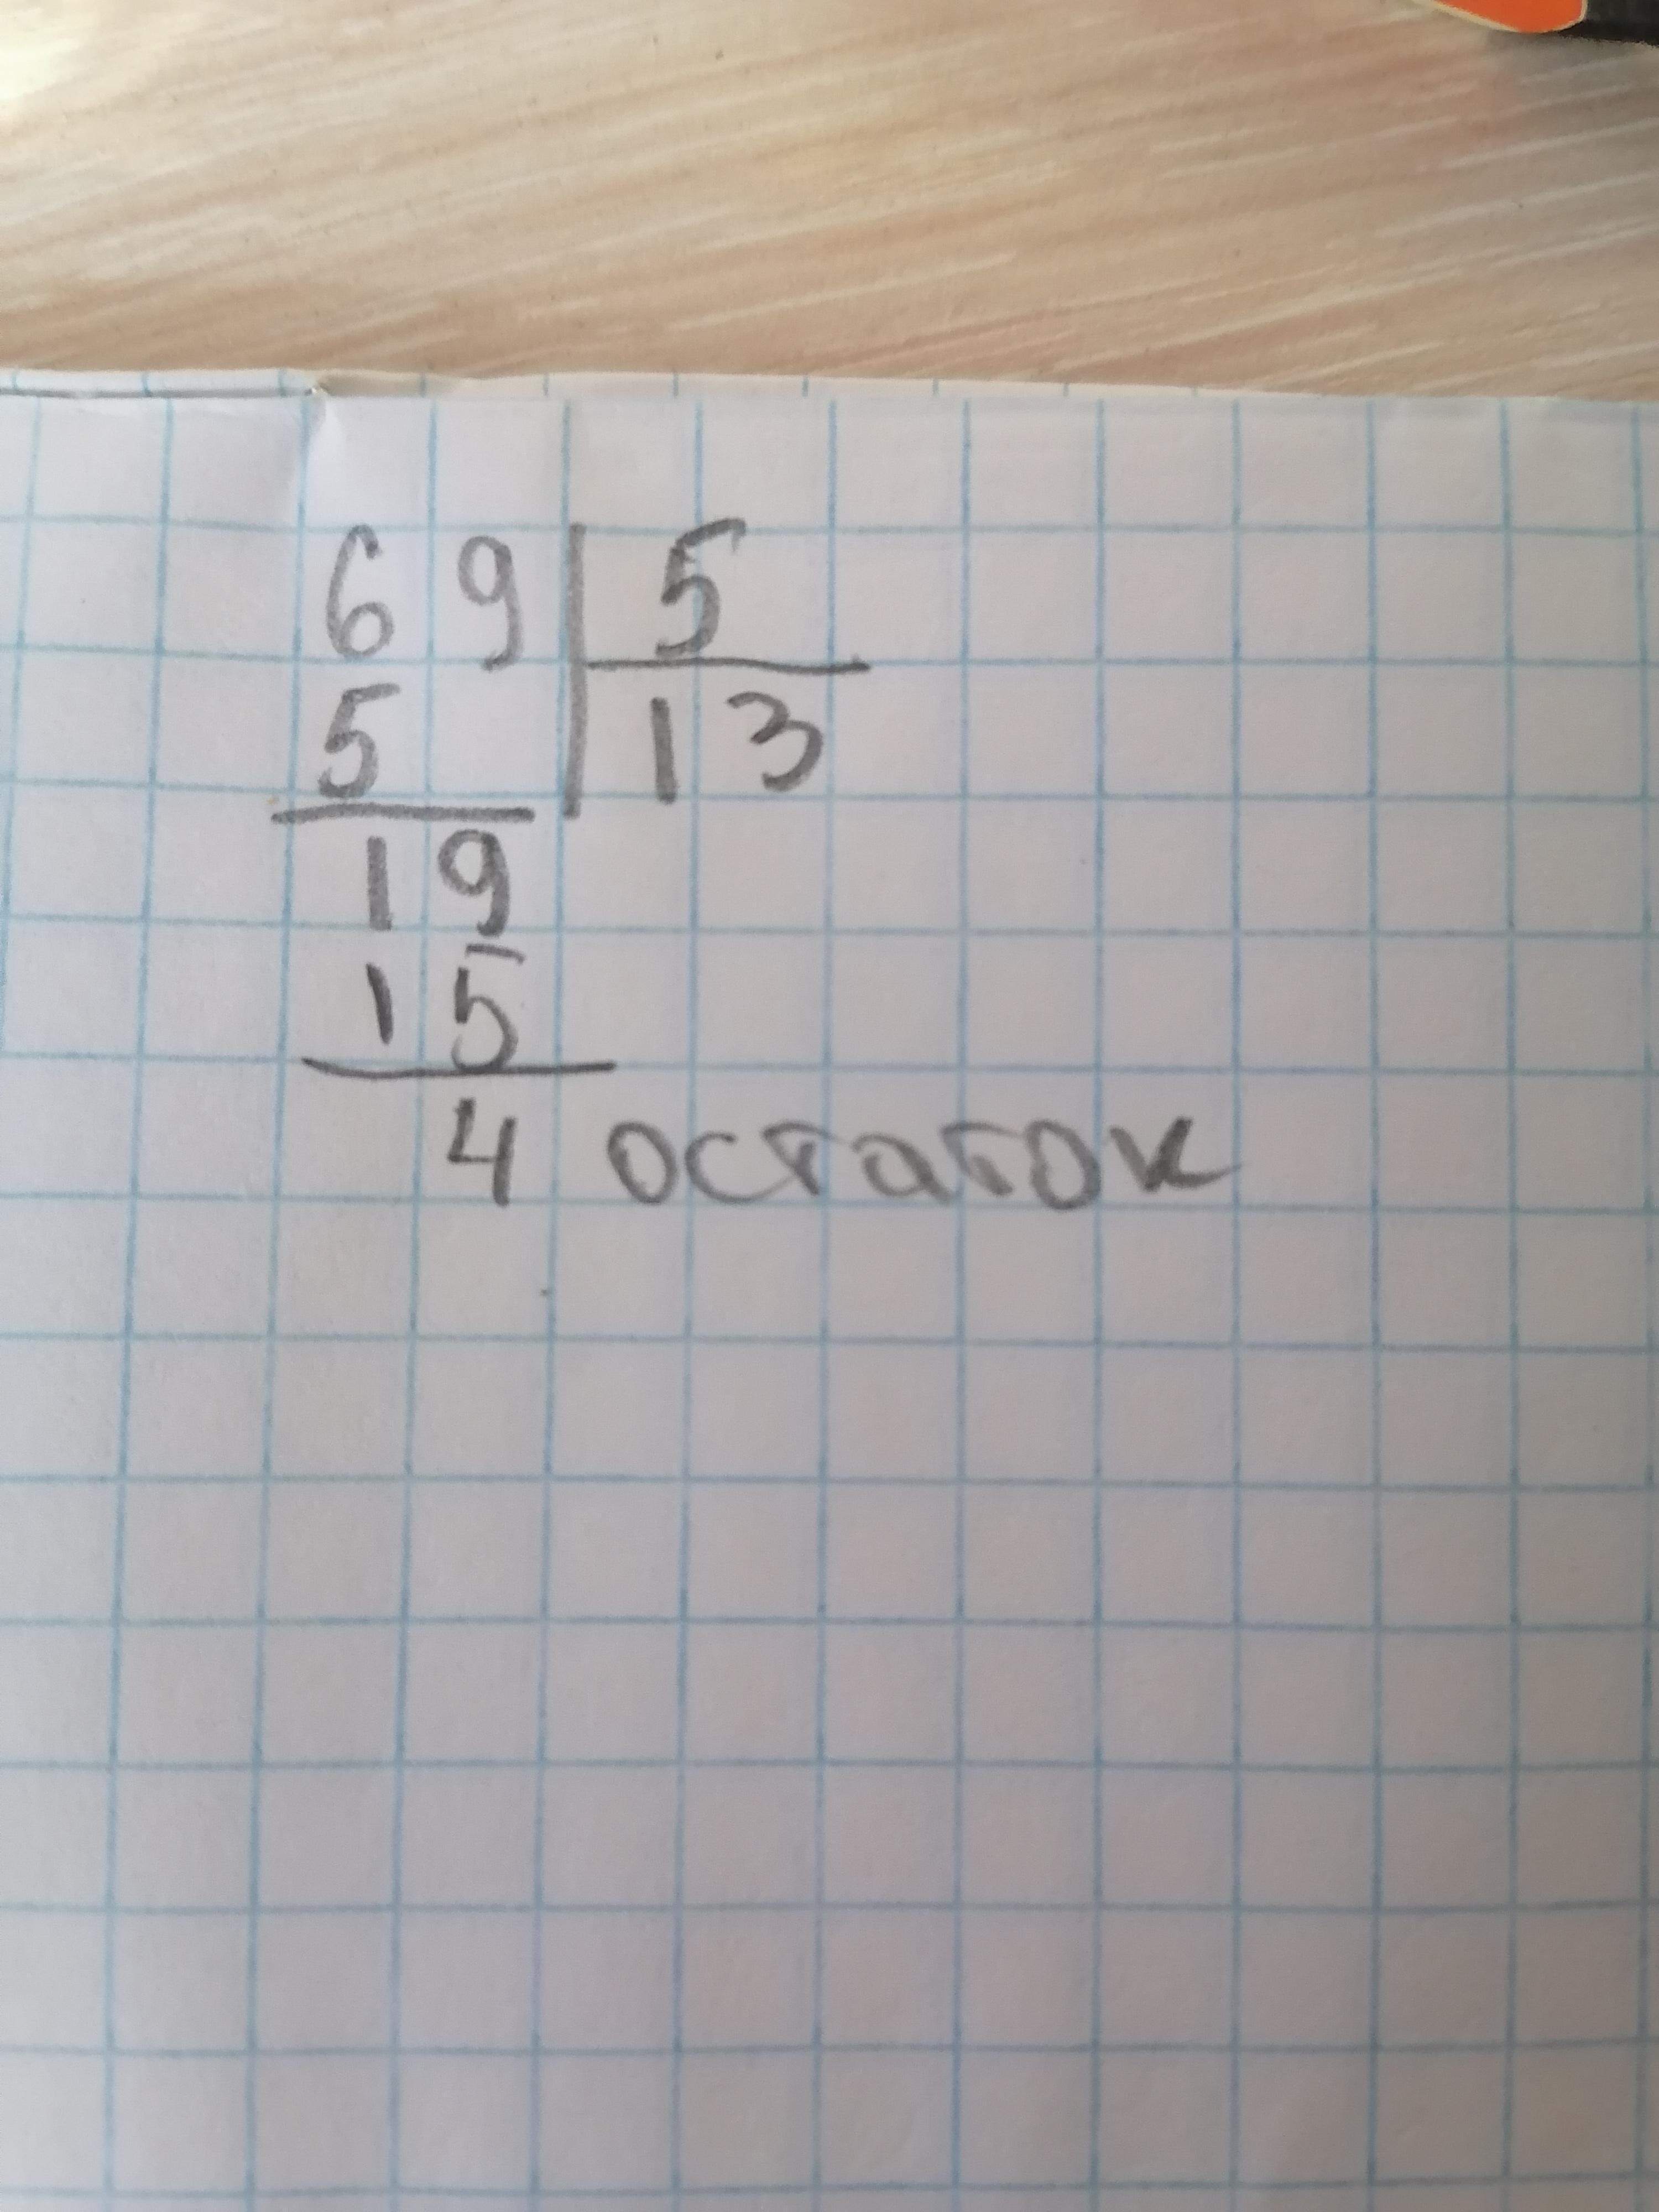 69 5
5 13
19
15
4 остаток